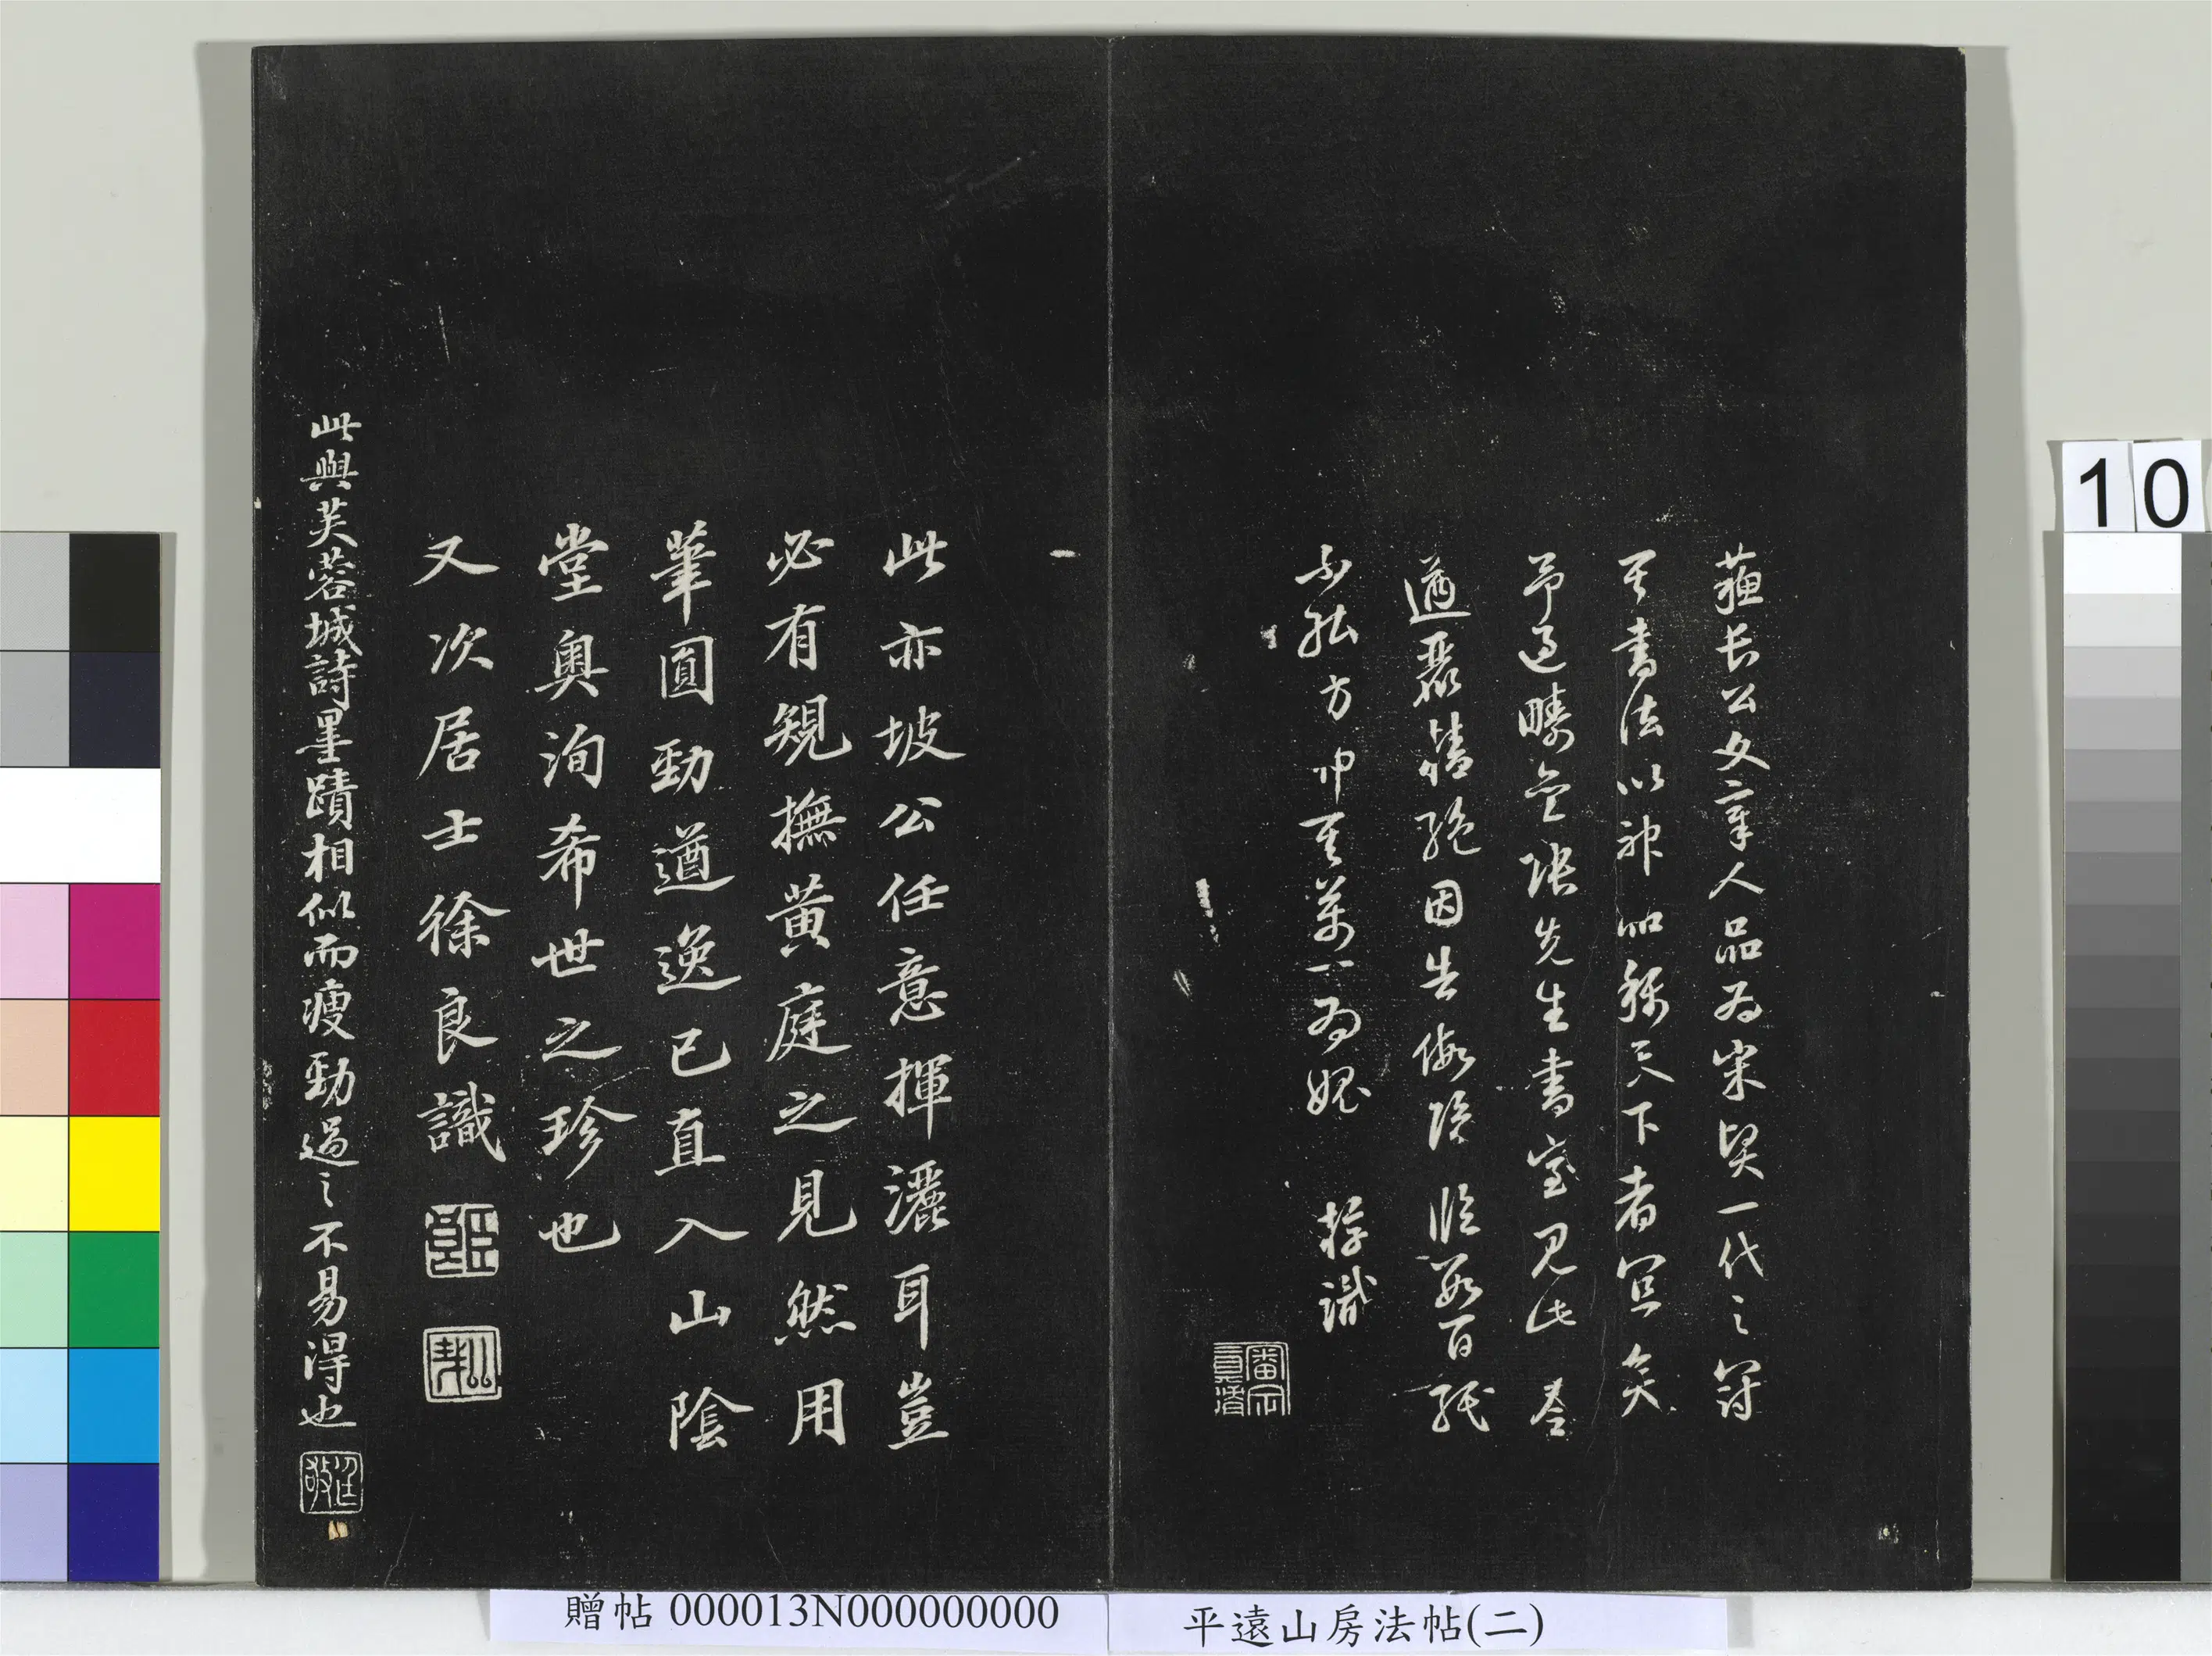 蘓長公文章人品為宋賢一代之冠
其書法以神品稱天下者宜矣
予過疇
先生書室見此卷
遒麗精絕因告假
臨數百紙
不能方巾其萬一為媿
識
此亦坡公任意揮灑耳豈
必有規撫黃庭之見然用
筆圓勁遒逸已直入山陰
堂奧洵希世之珍也
又次居士徐良識
此與芙蓉城詩墨蹟相似而瘦勁過之不易得也
10
贈帖 000013N000000000
平遠山房法帖(二)